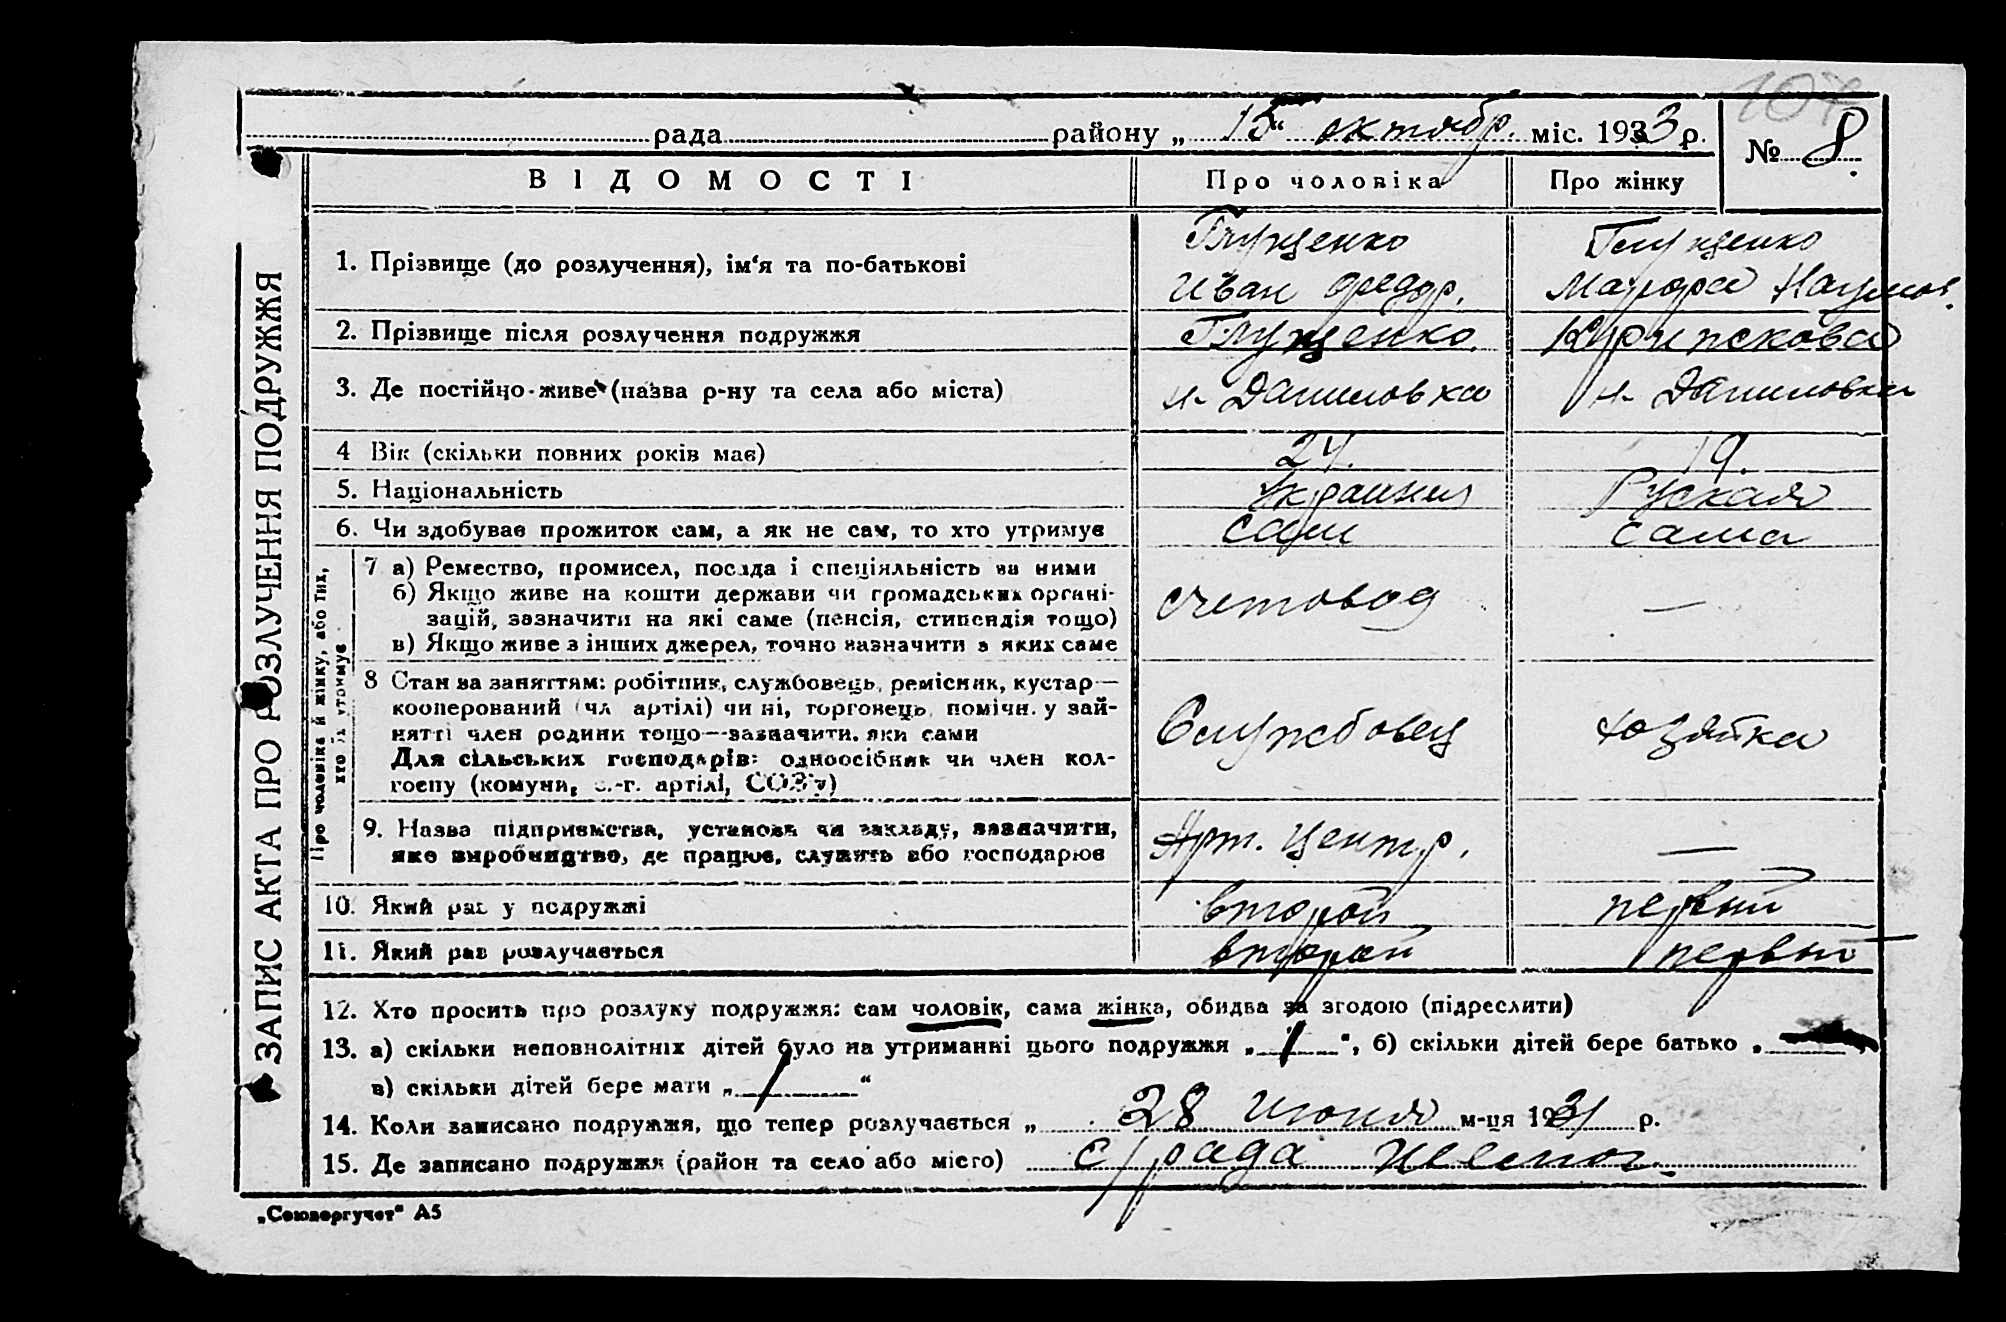 107
рада района „ 15 “ октябр. міс. 1933 р.
№ 8
ВІДОМОСТІ Про чоловіка Про жінку
ЗАПИС АКТА ПРО РОЗЛУЧЕННЯ ПОДРУЖЖЯ
1. Прізвище (до розлучення), ім‘я та по-батькові
Глущенко
Иван Федор.
Глущенко
Марфа Наумов.
2. Прізвище після розлучення подружжя Глущенко
3. Де постійно живе (назва р-ну та села або міста) н-Даниловка н-Даниловка
4 Вік (скільки повних років має) 24. 19.
5. Національність Украинец Руская
6. Чи здобуває прожиток сам, а як не сам, то хто утримує сам сама
Про чоловіка й жінку, або тих,
хто їх утримує
7 а) Ремество, промисел, посада і спеціяльність за ними
б) Якщо живе на кошти держави чи громадських органі-
зацій, зазначити на які саме (пенсія, стипендія тощо)
в) Якщо живе з інших джерел, точно зазначити з яких саме
счетовод —
8 Стан за заняттям: робітник, службовець, ремісник, кустар—
кооперований (чл артілі) чи ні, торговець, помічн. у зай-
нятті член родини тощо—зазначити, яки сами
Для сільських господарів: одноосібник чи член кол-
госпу (комуни, с.-г. артілі, СОЗу)
Службовец хозяйка
9. Назва підприємства, установи чи закладу, зазначити,
яке виробництво, де працює, служить або господарює
Арт. Центр. —
10. Який раз у подружжі второй первый
11. Який раз розлучається второй первый
12. Хто просить про розлуку подружжя: сам чоловік, сама жінка, обидва за згодою (підреслити)
13. а) скільки неповнолітніх дітей було на утриманні цього подружжя „ 1 “, б) скільки дітей бере батько „
в) скільки дітей бере мати „ 1 “
14. Коли записано подружжя, що тепер розлучається „ 28 июня м-ця 1931 р.
15. Де записано подружжя (район та село або місто) с/рада
„Союзоргучет“ А5